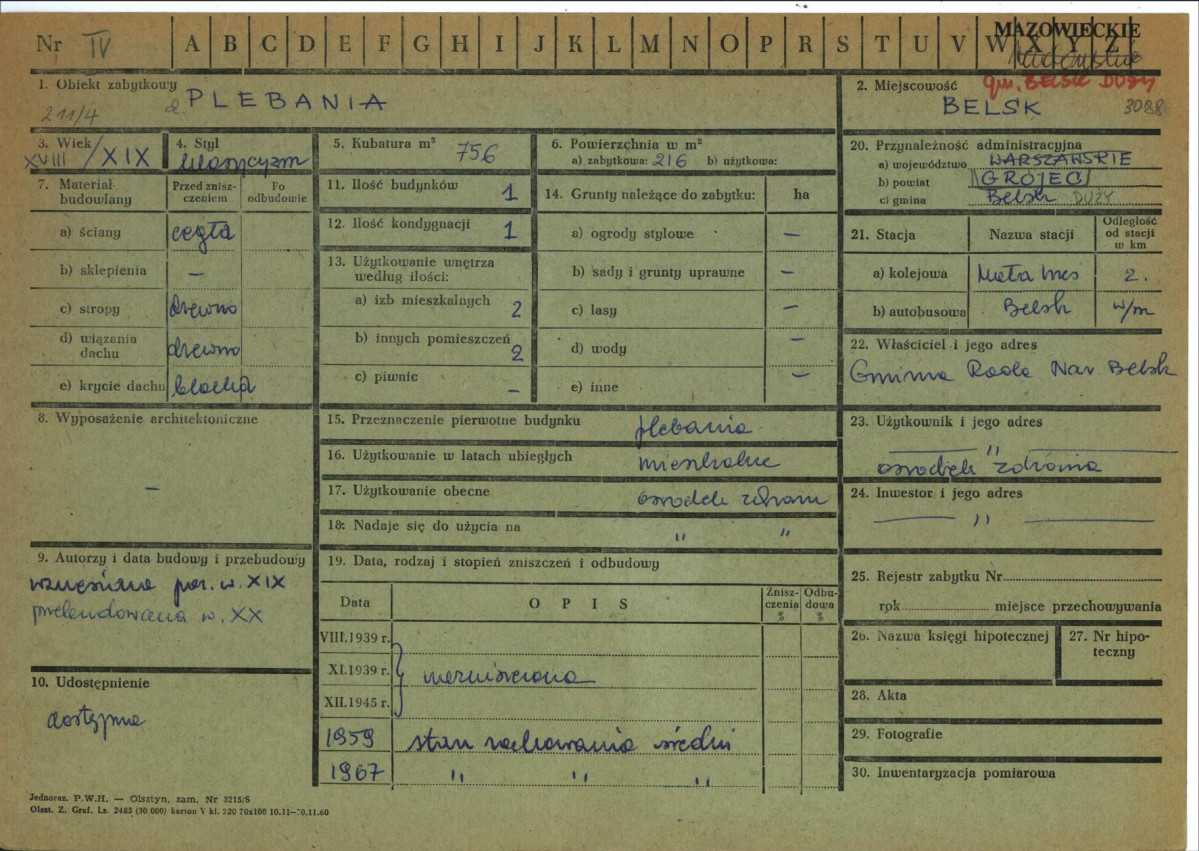 Nr IV A B C D E F G H I J K L M N O P R S T U V W X Y Z
MAZOWIECKIE
1. Obiekt zabytkowy
211/4 d. PLEBANIA
2. Miejscowość gm. BELSK DUŻY
BELSK 3088
3. Wiek
XVIII/XIX
4. Styl
klasycyzm
5. Kubatura m³ 756
6. Powierzchnia w m²
a) zabytkowa: 216 b) użytkowa:
7. Materiał budowlany
Przed zniszczeniem
Po odbudowie
a) ściany cegła
b) sklepienia —
c) stropy drewno
d) wiązania dachu drewno
e) krycie dachu blacha
8. Wyposażenie architektoniczne
—
9. Autorzy i data budowy i przebudowy
wzniesiona pocz. w. XIX
przebudowana w. XX
10. Udostępnienie
dostępna
11. Ilość budynków 1
12. Ilość kondygnacji 1
13. Użytkowanie wnętrza
według ilości:
a) izb mieszkalnych 2
b) innych pomieszczeń 2
c) piwnic —
14. Grunty należące do zabytku: ha
a) ogrody stylowe —
b) sady i grunty uprawne —
c) lasy —
d) wody —
e) inne —
15. Przeznaczenie pierwotne budynku plebania
16. Użytkowanie w latach ubiegłych mieszkalne
17. Użytkowanie obecne ośrodek zdrowia
18: Nadaje się do użycia na " "
19. Data, rodzaj i stopień zniszczeń i odbudowy
Data
O P I S
Zniszczenia %
Odbudowa %
VIII.1939 r.
XI.1939 r. niezniszczona
XII.1945 r.
1959 stan zachowania średni
1967 " " "
20. Przynależność administracyjna
a) województwo WARSZAWSKIE
b) powiat GRÓJEC
c) gmina Belsk DUŻY
21. Stacja
Nazwa stacji
Odległość od stacji w km
a) kolejowa Mała Wieś 2.
b) autobusowa Belsk w/m
22. Właściciel i jego adres
Gminna Rada Nar. Belsk
23. Użytkownik i jego adres
— " —
ośrodek zdrowia
24. Inwestor i jego adres
— " —
25. Rejestr zabytku Nr
rok miejsce przechowywania
26. Nazwa księgi hipotecznej
27. Nr hipoteczny
28. Akta
29. Fotografie
30. Inwentaryzacja pomiarowa
Jednoraz. P.W.H. — Olsztyn, zam. Nr 3215/S
Olszt. Z. Graf. Lz. 2485 (30 000) karton V kl. 220 70x100 10.11—30.11.60